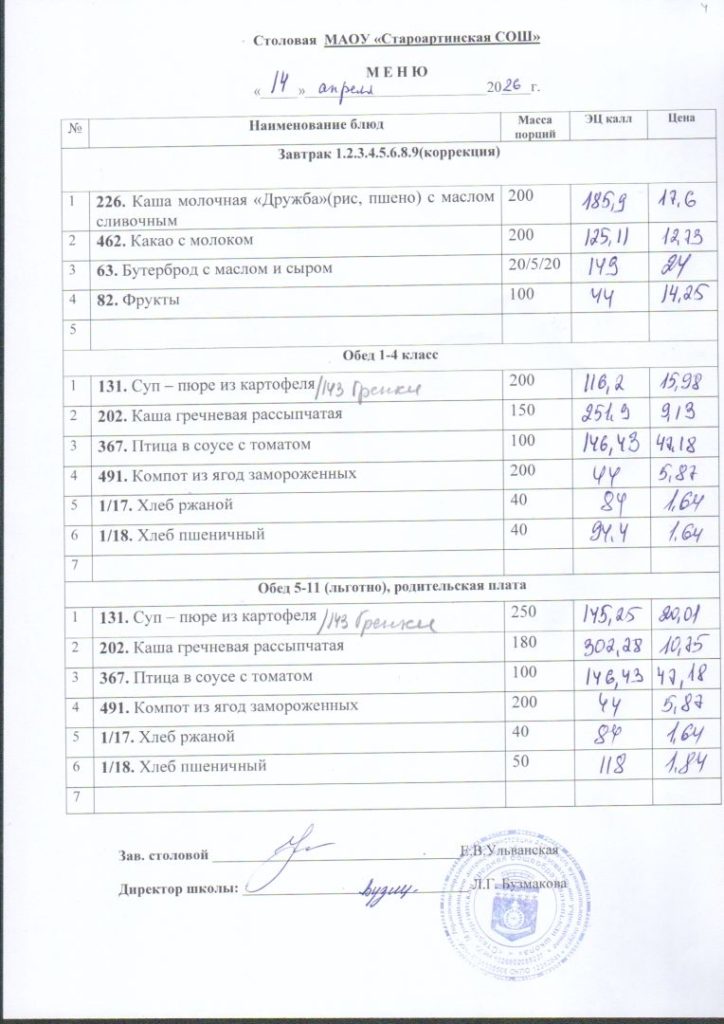 Столовая МАОУ «Староартинская СОШ»
М Е Н Ю
« 14 » апреля 2026 г.
№ Наименование блюд Масса порций ЭЦ калл Цена
Завтрак 1.2.3.4.5.6.8.9(коррекция)
1 226. Каша молочная «Дружба»(рис, пшено) с маслом 200 185,9 17,6
сливочным
2 462. Какао с молоком 200 125,11 12,73
3 63. Бутерброд с маслом и сыром 20/5/20 149 24
4 82. Фрукты 100 44 14,25
5
Обед 1-4 класс
1 131. Суп – пюре из картофеля /143 Гренки 200 116,2 15,98
2 202. Каша гречневая рассыпчатая 150 251,9 9,13
3 367. Птица в соусе с томатом 100 146,43 47,18
4 491. Компот из ягод замороженных 200 44 5,87
5 1/17. Хлеб ржаной 40 84 1,64
6 1/18. Хлеб пшеничный 40 94.4 1.64
7
Обед 5-11 (льготно), родительская плата
1 131. Суп – пюре из картофеля /143 Гренки 250 145,25 20,01
2 202. Каша гречневая рассыпчатая 180 302,28 10,75
3 367. Птица в соусе с томатом 100 146,43 47,18
4 491. Компот из ягод замороженных 200 44 5,87
5 1/17. Хлеб ржаной 40 84 1,64
6 1/18. Хлеб пшеничный 50 118 1.84
7
Зав. столовой Е.В.Ульванская
Директор школы: Л.Г. Бузмакова